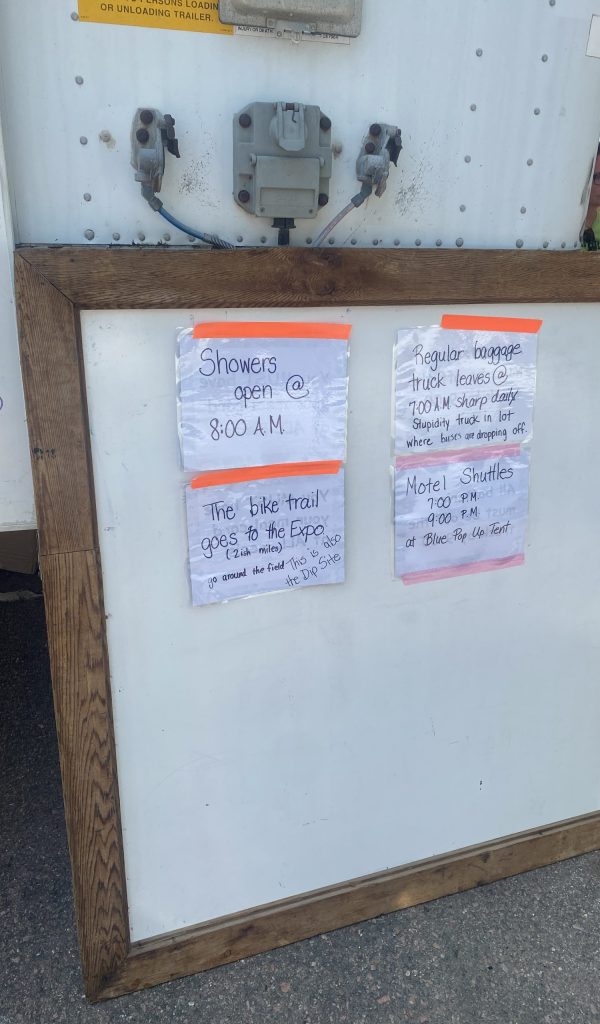 PERSONS LOADIN
OR UNLOADING TRAILER.
INJURY OR DEATH
Showers
open @
8:00 A.M.
Regular baggage
truck leaves @
7:00 A.M. sharp daily
Stupidity truck in lot
where buses are dropping off.
The bike trail
goes to the Expo
(2ish miles)
go around the field This is also
the Dip Site
Motel Shuttles
7:00 P.M.
9:00 P.M.
at Blue Pop Up Tent